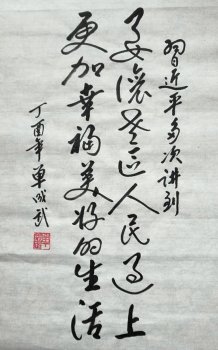 习近平多次讲到
要让老区人民过上
更加幸福美好的生活
丁酉年 单成武